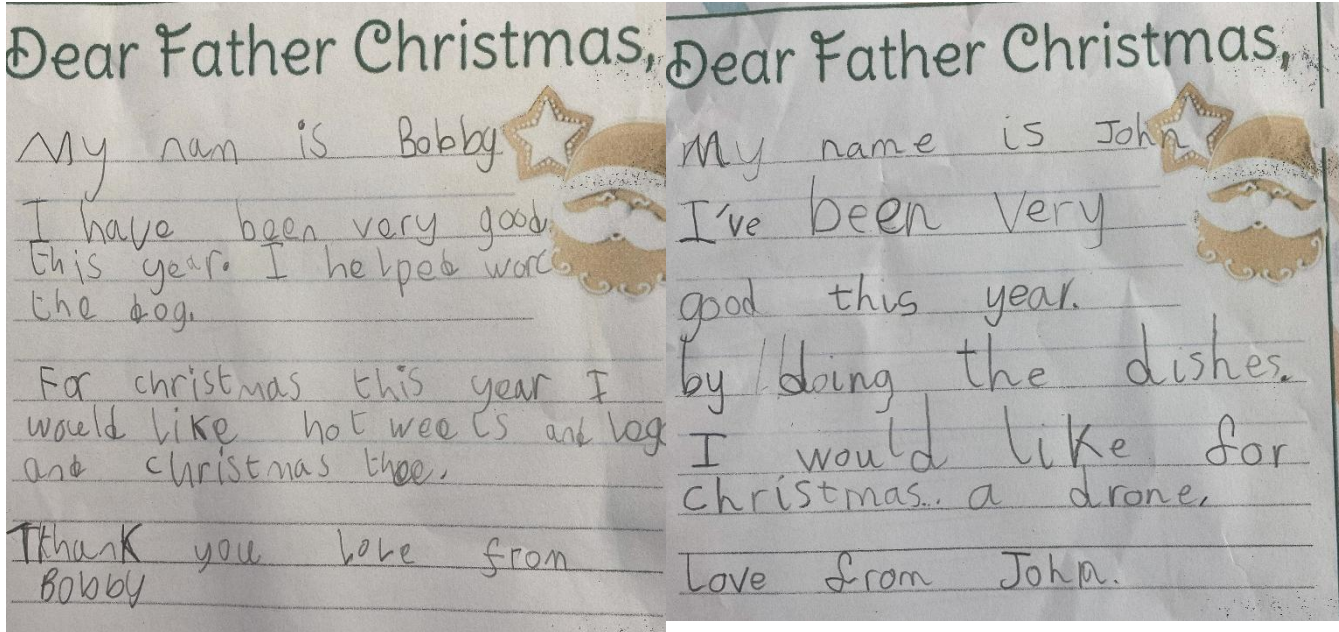 Dear Father Christmas,
My nam is Bobby
I have been very good
this year. I helped worc
the dog.
For christmas this year I
would like hot weels and leg
and christmas thee.
Tkhank you love from
Bobby
Dear Father Christmas,
My name is John
I've been very
good this year.
by doing the dishes.
I would like for
christmas.. a drone.
Love from John.